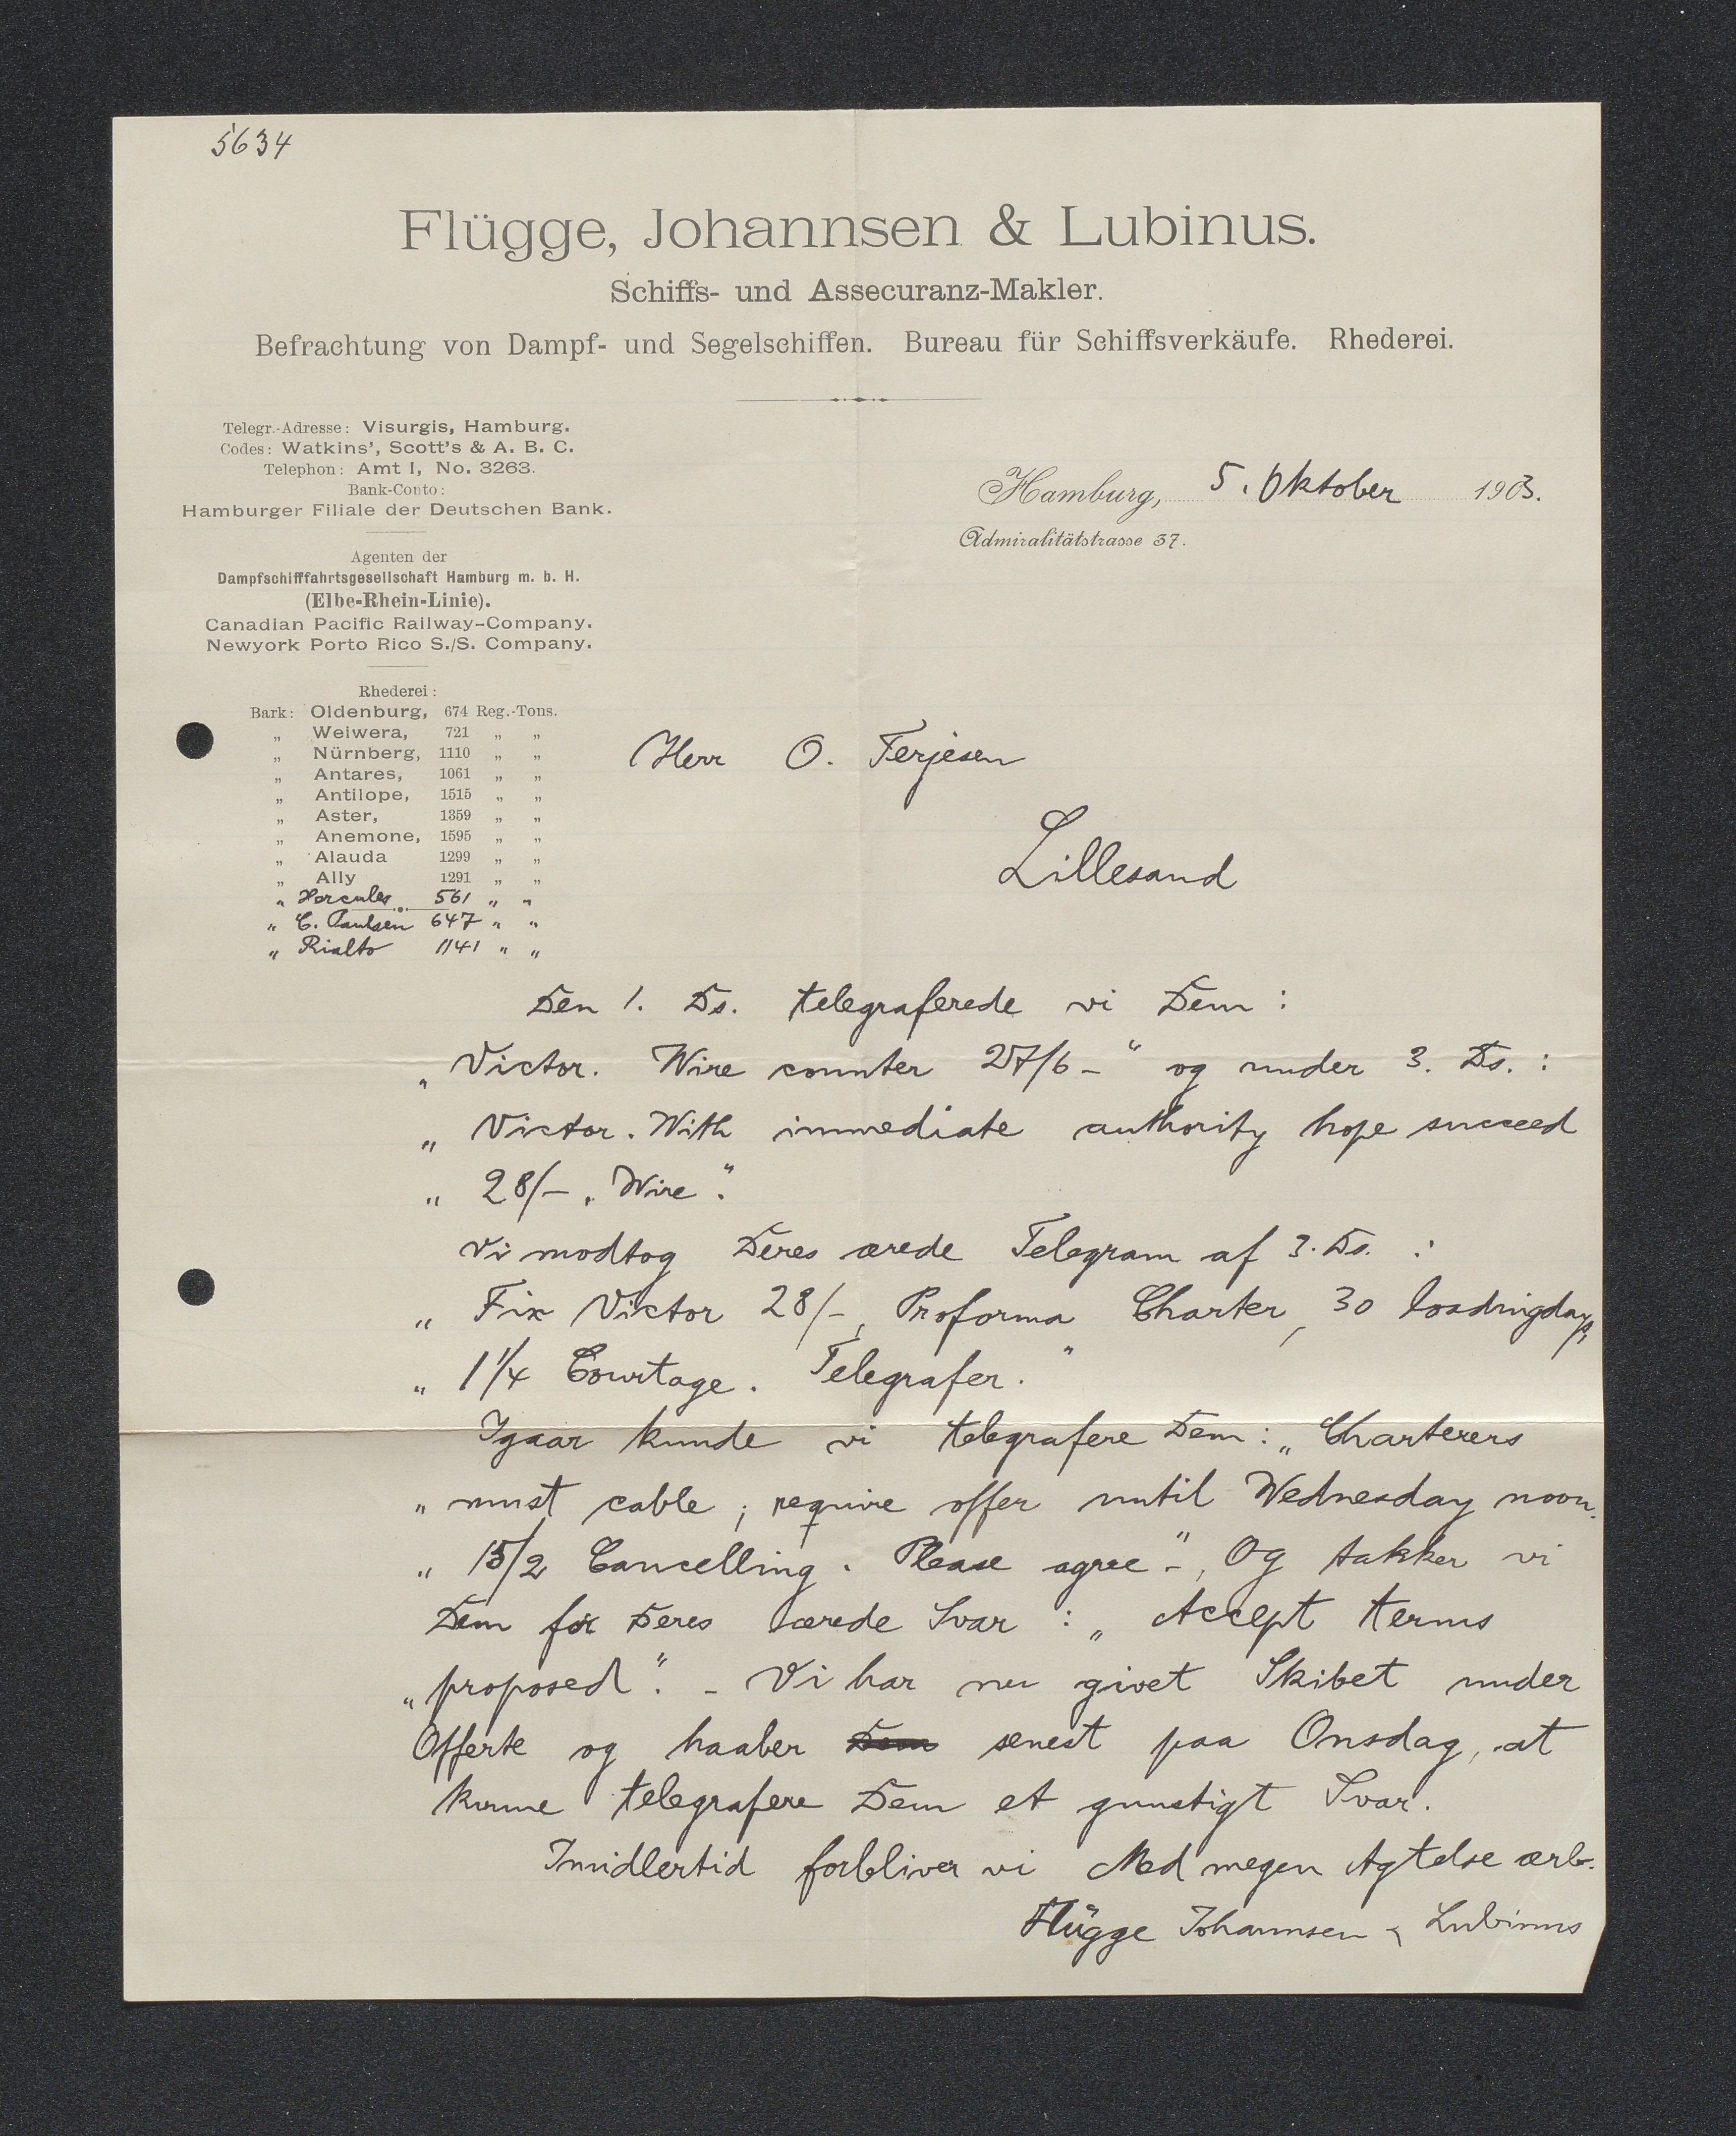 5634
Flügge, Johannsen & Lubinus.
Schiffs- und Assecuranz-Makler.
Befrachtung von Dampf- und Segelschiffen. Bureau für Schiffsverkäufe. Rhederei.
Telegr.-Adresse: Visurgis, Hamburg.
Codes: Watkins', Scott's & A. B. C.
Telephon: Amt I, No. 3263.
Bank-Conto:
Hamburger Filiale der Deutschen Bank.
Agenten der
Dampfschifffahrtsgesellschaft Hamburg m. b. H.
(Elbe-Rhein-Linie).
Canadian Pacific Railway-Company.
Newyork Porto Rico S./S. Company.
Hamburg, 5. Oktober 1903.
Admiralitätstrasse 37.
Rhederei:
Bark: Oldenburg, 674 Reg.-Tons.
„ Weiwera, 721 „ „
„ Nürnberg, 1110 „ „
„ Antares, 1061 „ „
„ Antilope, 1515 „ „
„ Aster, 1359 „ „
„ Anemone, 1595 „ „
„ Alauda 1299 „ „
„ Ally 1291 „ „
„ Hercules 561 „ „
„ C. Paulsen 647 „ „
„ Rialto 1141 „ „
Herr O. Terjesen
Lillesand
Den 1. Ds. telegraferede vi Dem:
„Victor. Wire counter 27/6 –“ og under 3. Ds.:
„ Victor. With immediate authority hope succeed
„ 28/–. Wire“.
Vi modtog Deres ærede Telegram af 3. Ds. :
„ Fix Victor 28/–, Proforma Charter, 30 loadingdays,
„ 1 1/4 Courtage. Telegrafer.“
Igaar kunde vi telegrafere Dem: „Charterers
„ must cable; require offer until Wednesday noon.
„ 15/2 Cancelling. Please agree“–, Og takker vi
Dem for Deres ærede Svar : „ Accept terms
„proposed“. – Vi har nu givet Skibet under
Offerte og haaber Dem senest paa Onsdag, at
kunne telegrafere Dem et gunstigt Svar.
Imidlertid forbliver vi Med megen Agtelse ærb.
Flügge Johannsen & Lubinus